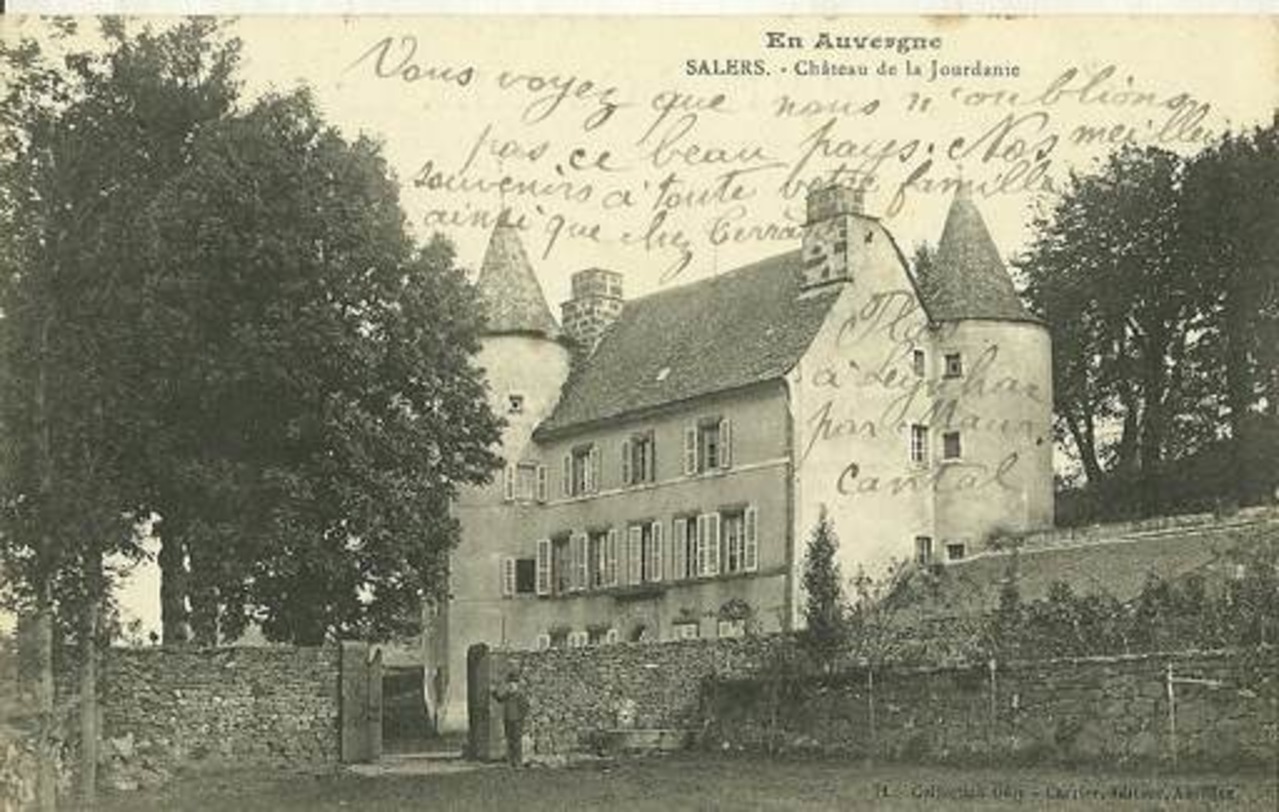 En Auvergne
SALERS. - Château de la Jourdanie
Vous voyez que nous n'oublions
pas ce beau pays. Nos meilleurs
souvenirs à toute votre famille
ainsi que chez
à
par Maurs
Cantal
Collection - éditeur, Aurillac